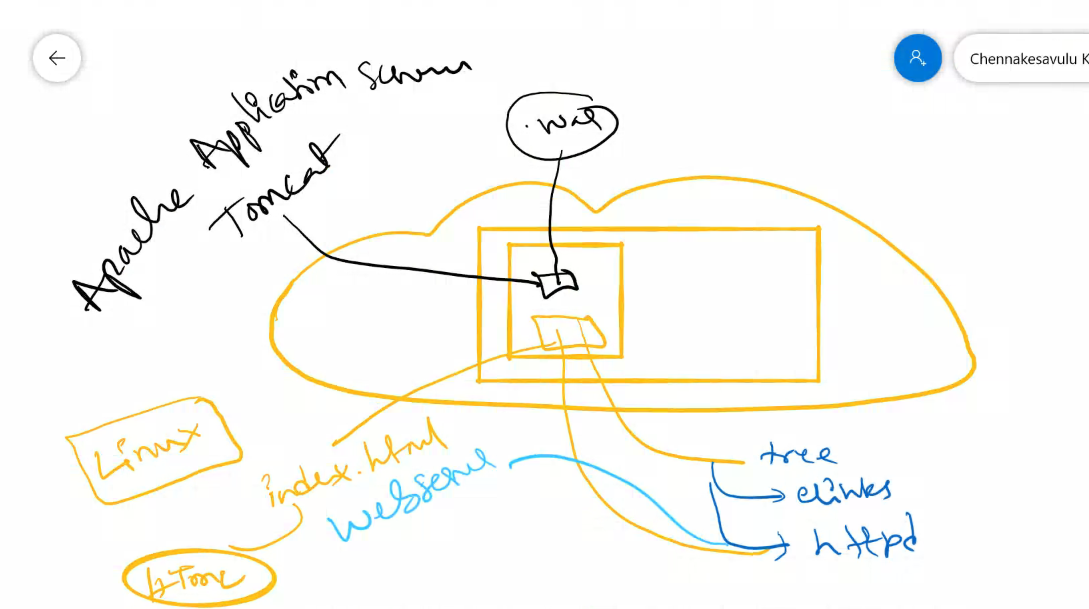 Chennakesavulu K
Apache Application Server
Tomcat
.war
Linux
index.html
webserver
tree
elinks
httpd